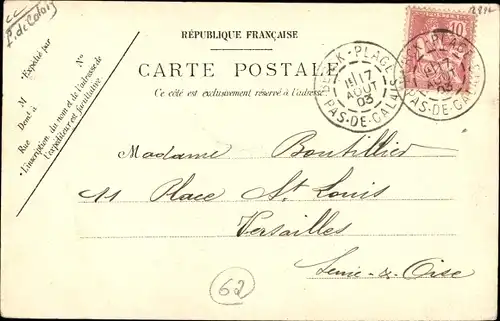 P. de Calais
RÉPUBLIQUE FRANÇAISE
CARTE POSTALE
Ce côté est exclusivement réservé à l'adresse
Expédié par
M
Nº
Demt à
Rue
L'inscription du nom et de l'adresse de
l'expéditeur est facultative.
10
BERCK-PLAGE
17
AOUT
03
PAS-DE-CALAIS
PLAGE
17
03
PAS-DE-CALAIS
Madame Boutillier
11 Place St Louis
Versailles
Seine-&-Oise
62